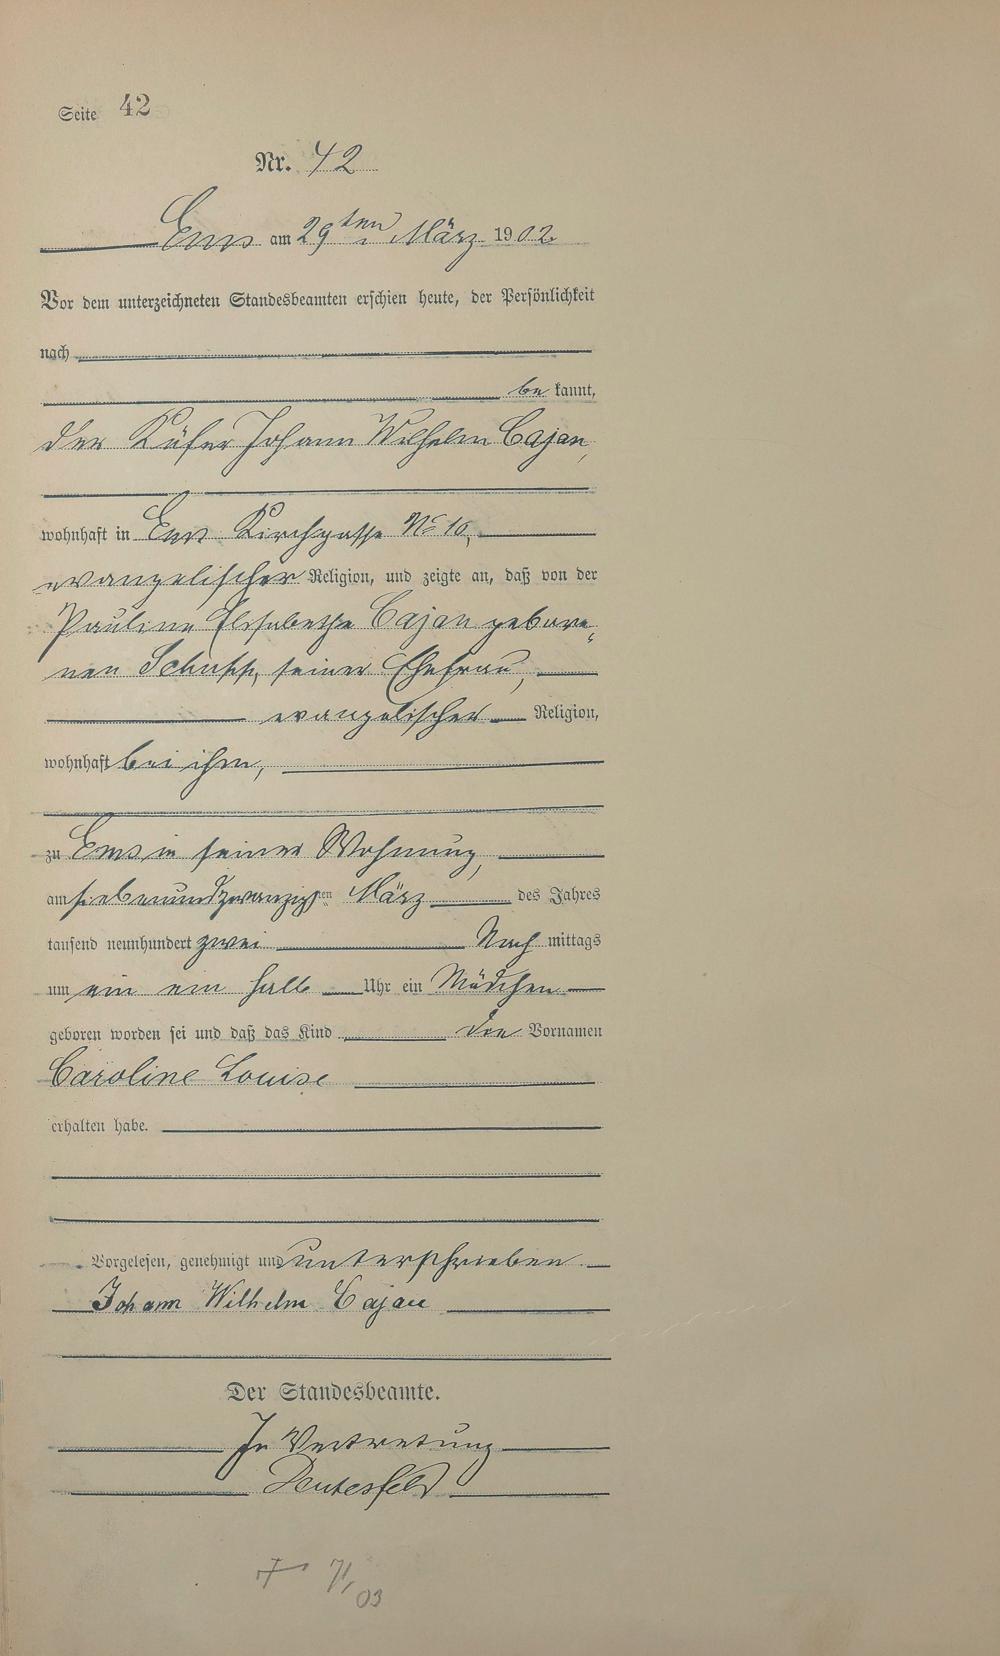 Seite 42
Nr. 42
Ems am 29ten März 1902.
Vor dem unterzeichneten Standesbeamten erschien heute, der Persönlichkeit
nach
be kannt,
der Küfer Johann Wilhelm Cajan,
wohnhaft in Ems Kirchgasse No 10,
evangelischer Religion, und zeigte an, daß von der
Pauline Elisabethe Cajan gebore-
nen Schupp, seiner Ehefrau,
evangelischer Religion,
wohnhaft bei ihm,
zu Ems in seiner Wohnung,
am siebenundzwanzigsten März des Jahres
tausend neunhundert zwei Nach mittags
um ein ein halb Uhr ein Mädchen
geboren worden sei und daß das Kind die Vornamen
Caroline Louise
erhalten habe.
Vorgelesen, genehmigt und unterschrieben
Johann Wilhelm Cajan
Der Standesbeamte.
In Vertretung
03